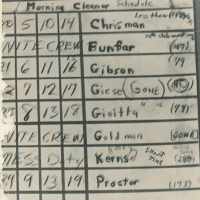 Morning Cleaner Schedule
5 10 14 Chrisman Less than
NITE CREW Bunbar (97)
6 11 16 Gibson 79
7 12 17 Giese (GONE)
8 13 18 Gioitta " " (79)
NITE CREW Goldman (GONE)
MESS Duty Kerns SHORT TIME (280)
9 13 19 Proctor (173)